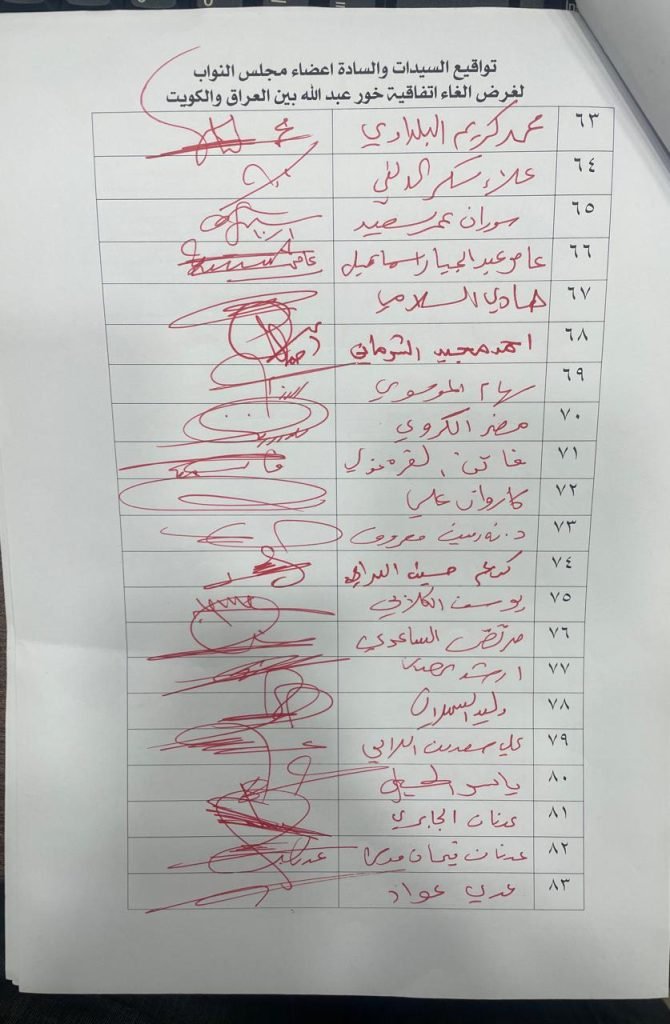 تواقيع السيدات والسادة اعضاء مجلس النواب
لغرض الغاء اتفاقية خور عبد الله بين العراق والكويت
٦٣ محمد كريم البلداوي
٦٤ علاء سكر الدلفي
٦٥ سوران عمر سعيد
٦٦ عامر عبد الجبار اسماعيل عامر
٦٧ هادي السلامي
٦٨ احمد مجيد الشرماني احمد
٦٩ سهام الموسوي
٧٠ مضر الكروي
٧١ فاتن القره غولي
٧٢ كاروان علي
٧٣ د. نه رمين معروف
٧٤ حسين
٧٥ يوسف الكلابي
٧٦ مرتضى الساعدي
٧٧ ارشد
٧٨ وليد السهلاني
٧٩ علي اللامي
٨٠ ياسر الحسيني
٨١ عدنان الجابري
٨٢ عدنان عدنان
٨٣ عدي عواد